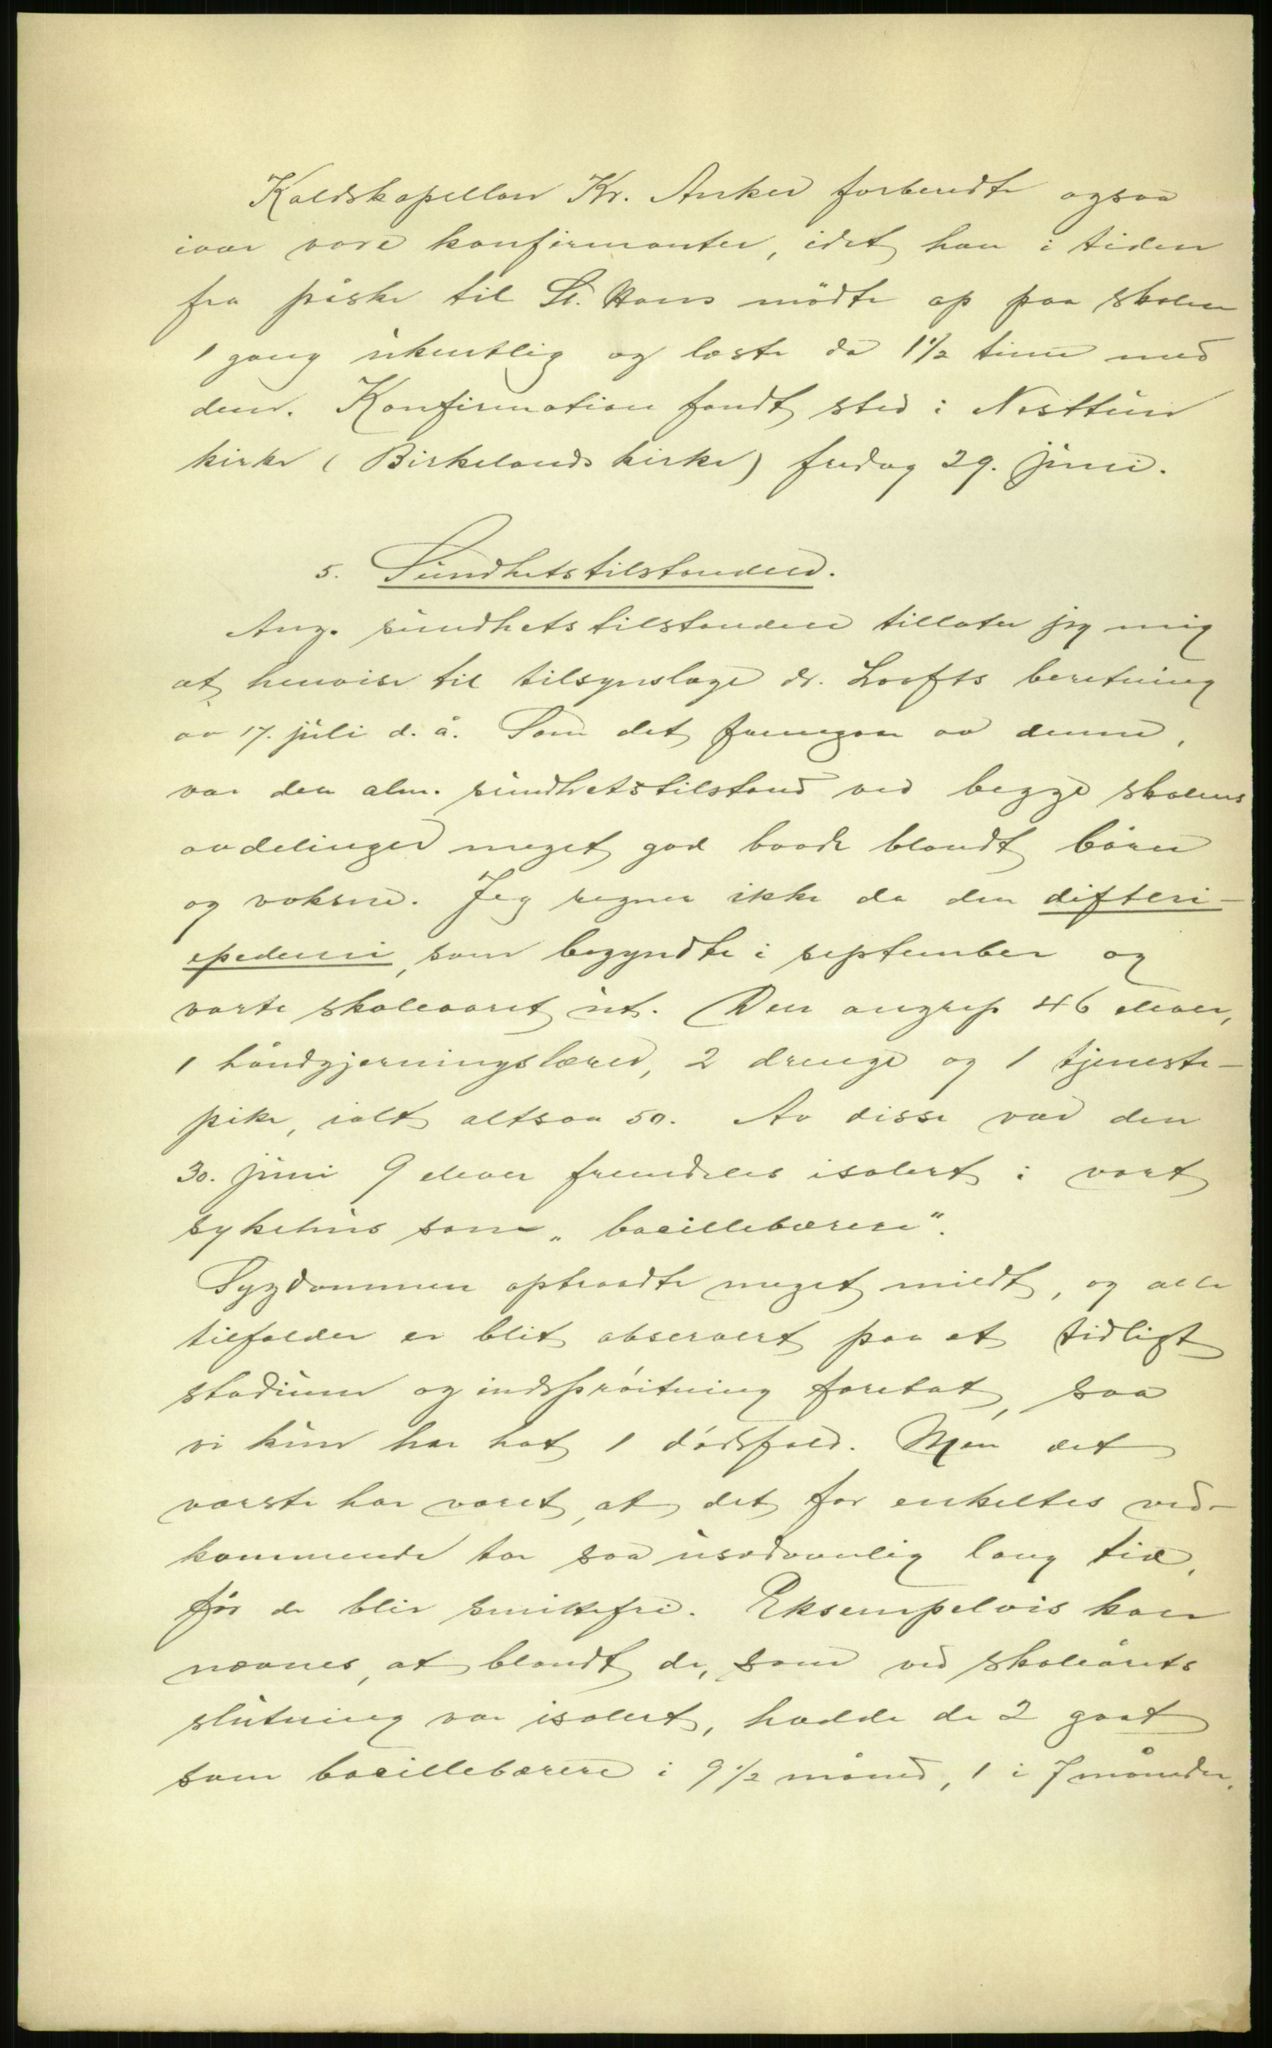 Kaldskapellan Kr. Anker forberedte ogsaa
iaar vore konfirmanter, idet han i tiden
fra påske til St. Hans mødte op paa skolen
1 gang ukentlig og læste da 1½ time med
dem. Konfirmation fandt sted i Nesttun
kirke (Birkelands kirke) fredag 29. juni.
5. Sundhetstilstanden.
Ang. sundhetstilstanden tillater jeg mig
at henvise til tilsynslæge dr. Loofts beretning
av 17. juli d. å. Som det fremgaar av denne,
var den alm. sundhetstilstand ved begge skolens
avdelinger meget god baade blandt børn
og voksne. Jeg regner ikke da den difteri-
epedemi, som begyndte i september og
varte skoleaaret ut. Den angrep 46 elever,
1 håndgjerningslærer, 2 drenge og 1 tjeneste-
pike, ialt altsaa 50. Av disse var den
30. juni 9 elever fremdeles isolert i vort
sykehus som „bacillebærere“.
Sygdommen optraadte meget mildt, og alle
tilfælder er blit observert paa et tidligt
stadium og indsprøitning foretat, saa
vi kun har hat 1 dødsfald. Men det
værste har været, at det for enkeltes ved-
kommende tar saa usedvanlig lang tid,
før de blir smittefri. Eksempelvis kan
nævnes, at blandt de, som ved skoleårets
slutning var isolert, hadde de 2 gaat
som bacillebærere i 9½ måned, 1 i 7 måneder,